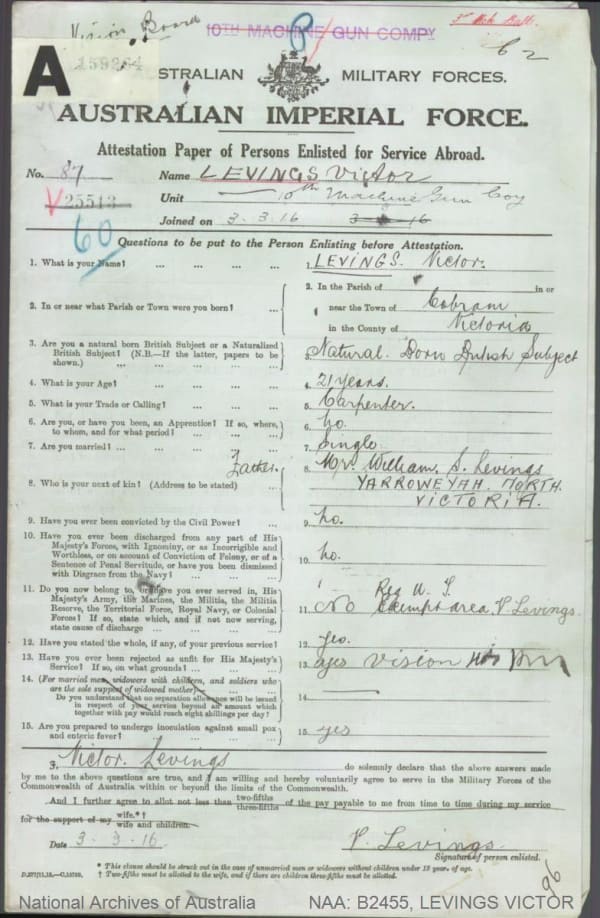 Vision Board
10TH MACHINE GUN COMPY
62
A
AUSTRALIAN MILITARY FORCES.
AUSTRALIAN IMPERIAL FORCE.
Attestation Paper of Persons Enlisted for Service Abroad.
No. 87 Name LEVINGS Victor
V 25513 Unit 10th Machine Gun Coy
60 Joined on 3.3.16 3-3-16
Questions to be put to the Person Enlisting before Attestation.
1. What is your Name? ... ... ... ... 1. LEVINGS. Victor.
2. In or near what Parish or Town were you born? ... 2. In the Parish of in or
near the Town of Cobram
in the County of Victoria
3. Are you a natural born British Subject or a Naturalized British Subject? (N.B.—If the latter, papers to be shown.) 3. Natural Born British Subject
4. What is your Age? ... ... ... ... 4. 21 years.
5. What is your Trade or Calling? ... ... ... 5. Carpenter.
6. Are you, or have you been, an Apprentice? If so, where, to whom, and for what period? ... ... ... 6. no.
7. Are you married? ... ... ... ... 7. Single
Father.
8. Who is your next of kin? (Address to be stated) ... 8. Mr. William. S. Levings
YARROWEYAH. NORTH.
VICTORIA.
9. Have you ever been convicted by the Civil Power? ... 9. no.
10. Have you ever been discharged from any part of His Majesty's Forces, with Ignominy, or as Incorrigible and Worthless, or on account of Conviction of Felony, or of a Sentence of Penal Servitude, or have you been dismissed with Disgrace from the Navy? ... ... 10. no.
11. Do you now belong to, or have you ever served in, His Majesty's Army, the Marines, the Militia, the Militia Reserve, the Territorial Force, Royal Navy, or Colonial Forces? If so, state which, and if not now serving, state cause of discharge ... ... ... 11. No Exempt area. V. Levings.
12. Have you stated the whole, if any, of your previous service? 12. yes.
13. Have you ever been rejected as unfit for His Majesty's Service? If so, on what grounds? ... ... 13. yes Vision
14. (For married men, widowers with children, and soldiers who are the sole support of widowed mother)
Do you understand that no separation allowance will be issued in respect of your service beyond an amount which together with pay would reach eight shillings per day? 14.
15. Are you prepared to undergo inoculation against small pox and enteric fever? ... ... ... 15. yes
I, Victor. Levings do solemnly declare that the above answers made
by me to the above questions are true, and I am willing and hereby voluntarily agree to serve in the Military Forces of the
Commonwealth of Australia within or beyond the limits of the Commonwealth.
And I further agree to allot not less than two-fifths three-fifths of the pay payable to me from time to time during my service
for the support of my wife.*† wife and children.
Date 3-3-16 V. Levings.
Signature of person enlisted.
* This clause should be struck out in the case of unmarried men or widowers without children under 18 years of age.
† Two-fifths must be allotted to the wife, and if there are children three-fifths must be allotted.
96
National Archives of Australia NAA: B2455, LEVINGS VICTOR